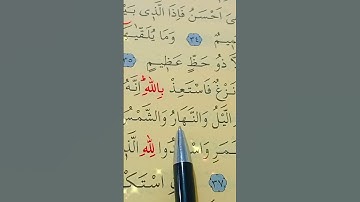 ىَ اَحْسَنُ فَاِذَا الَّذ۪ي بَيْ
ظ۪يمٌ ﴿٣٤﴾ وَمَا يُلَقّٰيهَٓا
لَّا ذُو حَظٍّ عَظ۪يمٍ ﴿٣٥﴾
نَزْغٌ فَاسْتَعِذْ بِاللّٰهِۜ اِنَّهُ
الَّيْلُ وَالنَّهَارُ وَالشَّمْسُ
مَرِ وَاسْجُدُوا لِلّٰهِ الَّذ۪
﴿٣٧﴾ اسْتَكْ